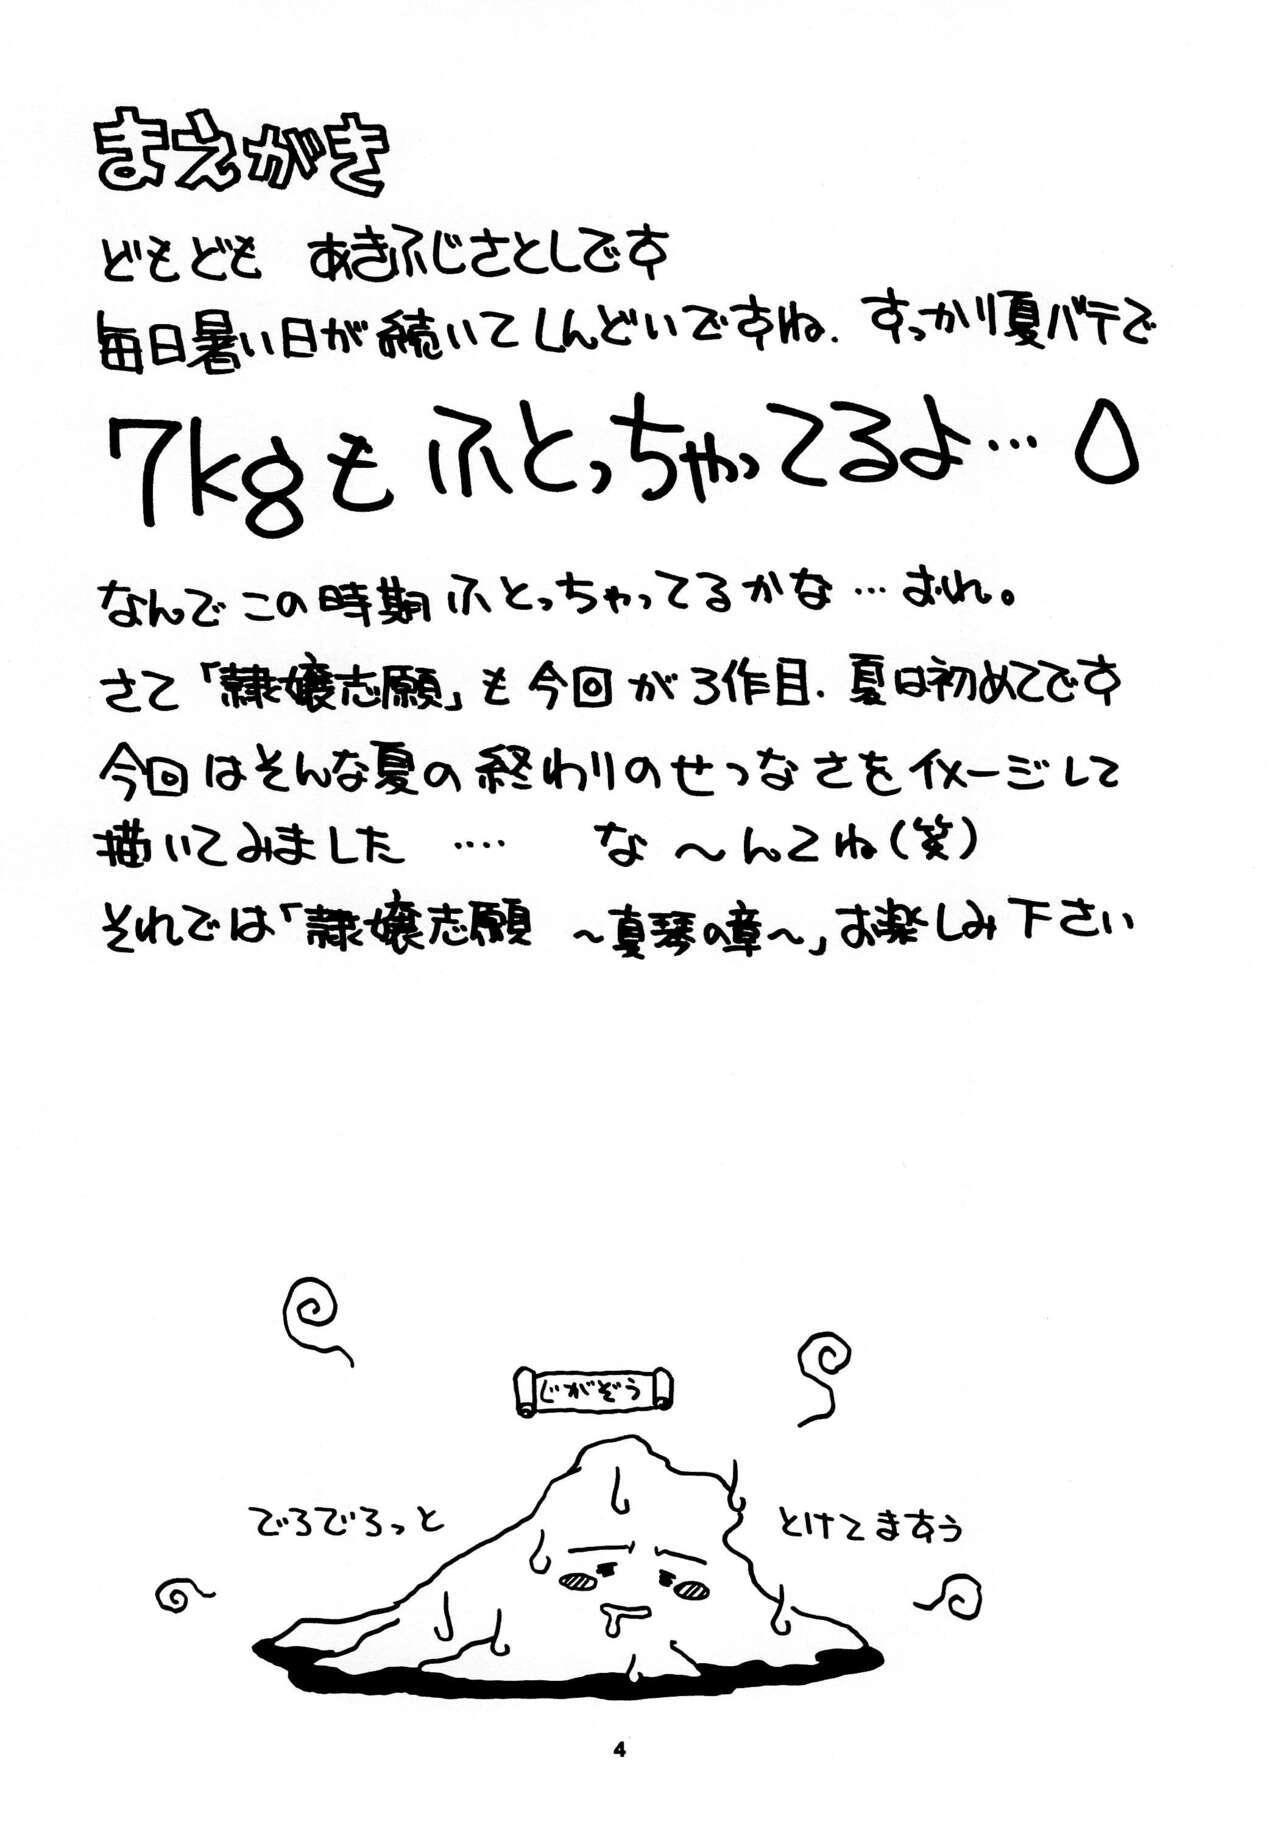 まえがき
どもども あきふじさとしです
毎日暑い日が続いてしんどいですね、すっかり夏バテで
7kgもふとっちゃってるよ…
なんでこの時期ふとっちゃってるかな…おれ。
さて「隷嬢志願」も今回が3作目、夏は初めてです
今回はそんな夏の終わりのせつなさをイメージして
描いてみました …… な〜んてね(笑)
それでは「隷嬢志願 〜真琴の章〜」お楽しみ下さい
じがぞう
でろでろっと
とけてますぅ
4